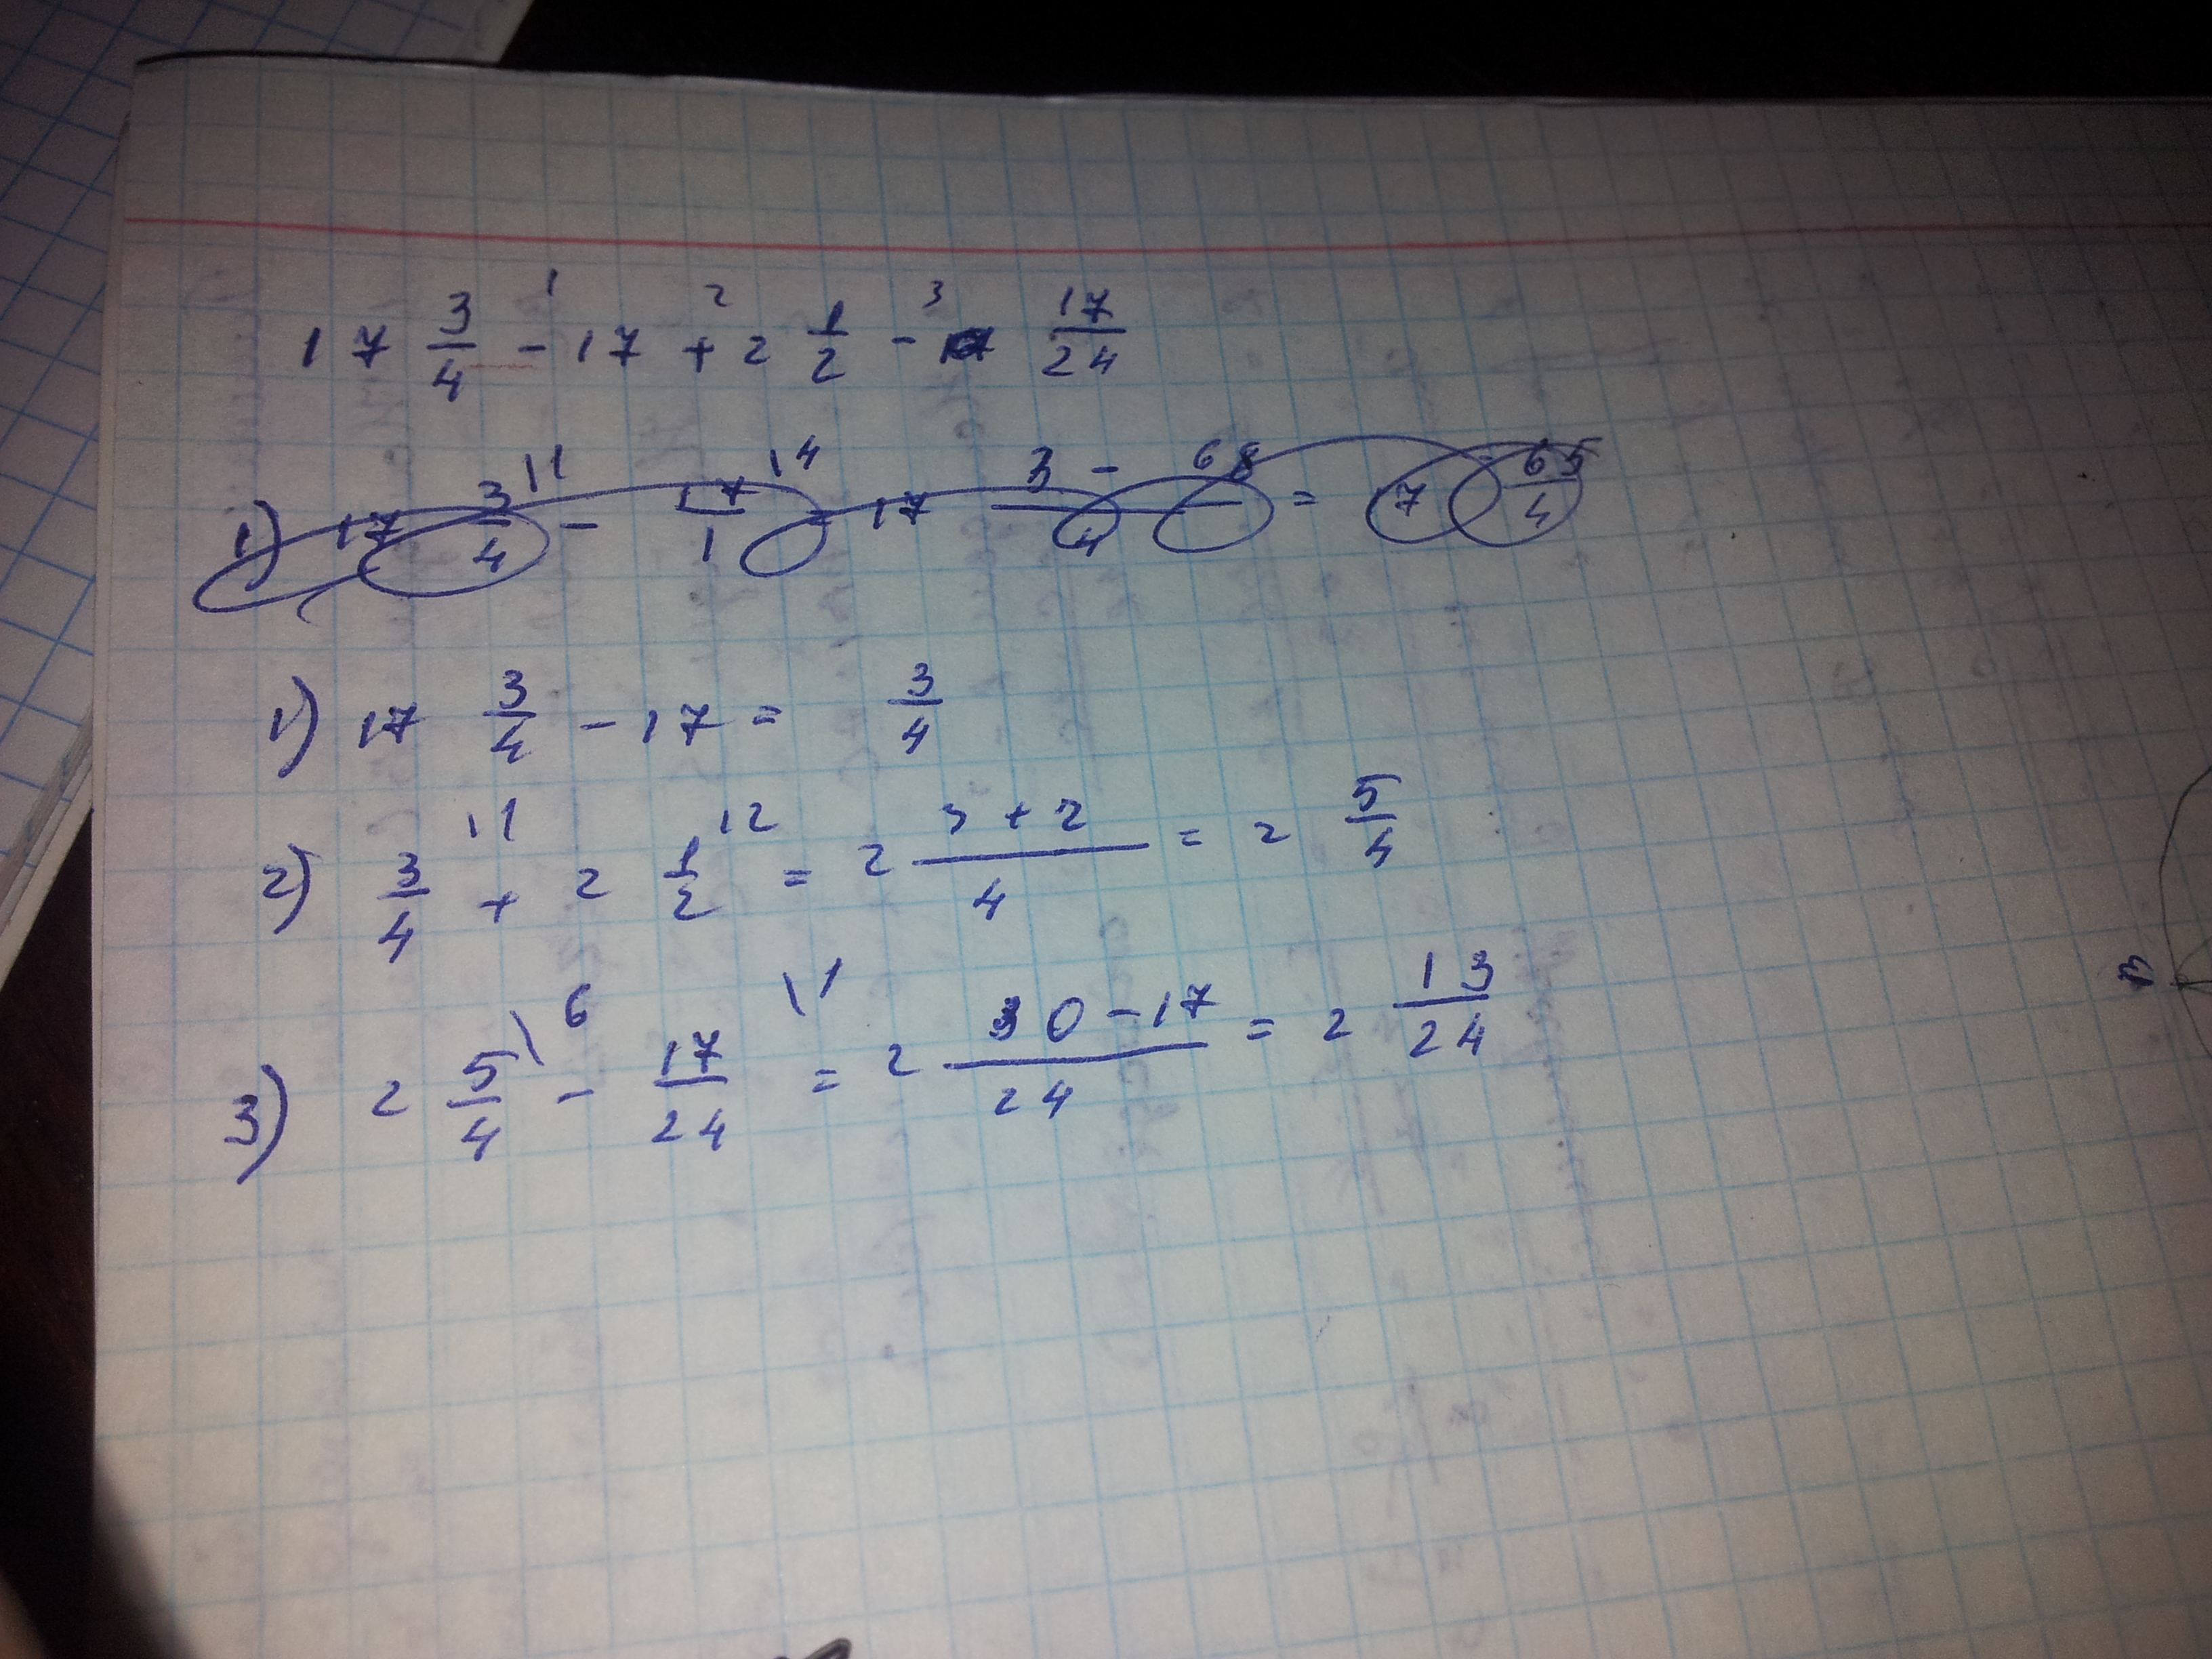 17 3/4 -¹ 17 +² 2 1/2 -³ 17/24
1) 17 3/4 \1 - 17/1 \4 = 17 3 - 68/4 = 7 65/4
1) 17 3/4 - 17 = 3/4
2) 3/4 \1 + 2 1/2 \2 = 2 3+2/4 = 2 5/4
3) 2 5/4 \6 - 17/24 \1 = 2 30-17/24 = 2 13/24